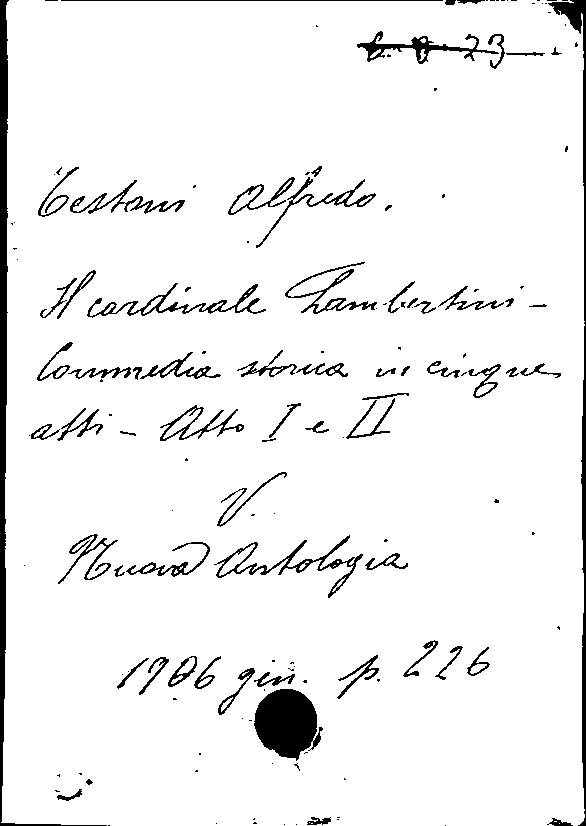 Testoni Alfredo.
Il cardinale Lambertini -
Commedia storica in cinque
atti - Atto I e II
V.
Nuova Antologia
1906 gen. p. 226